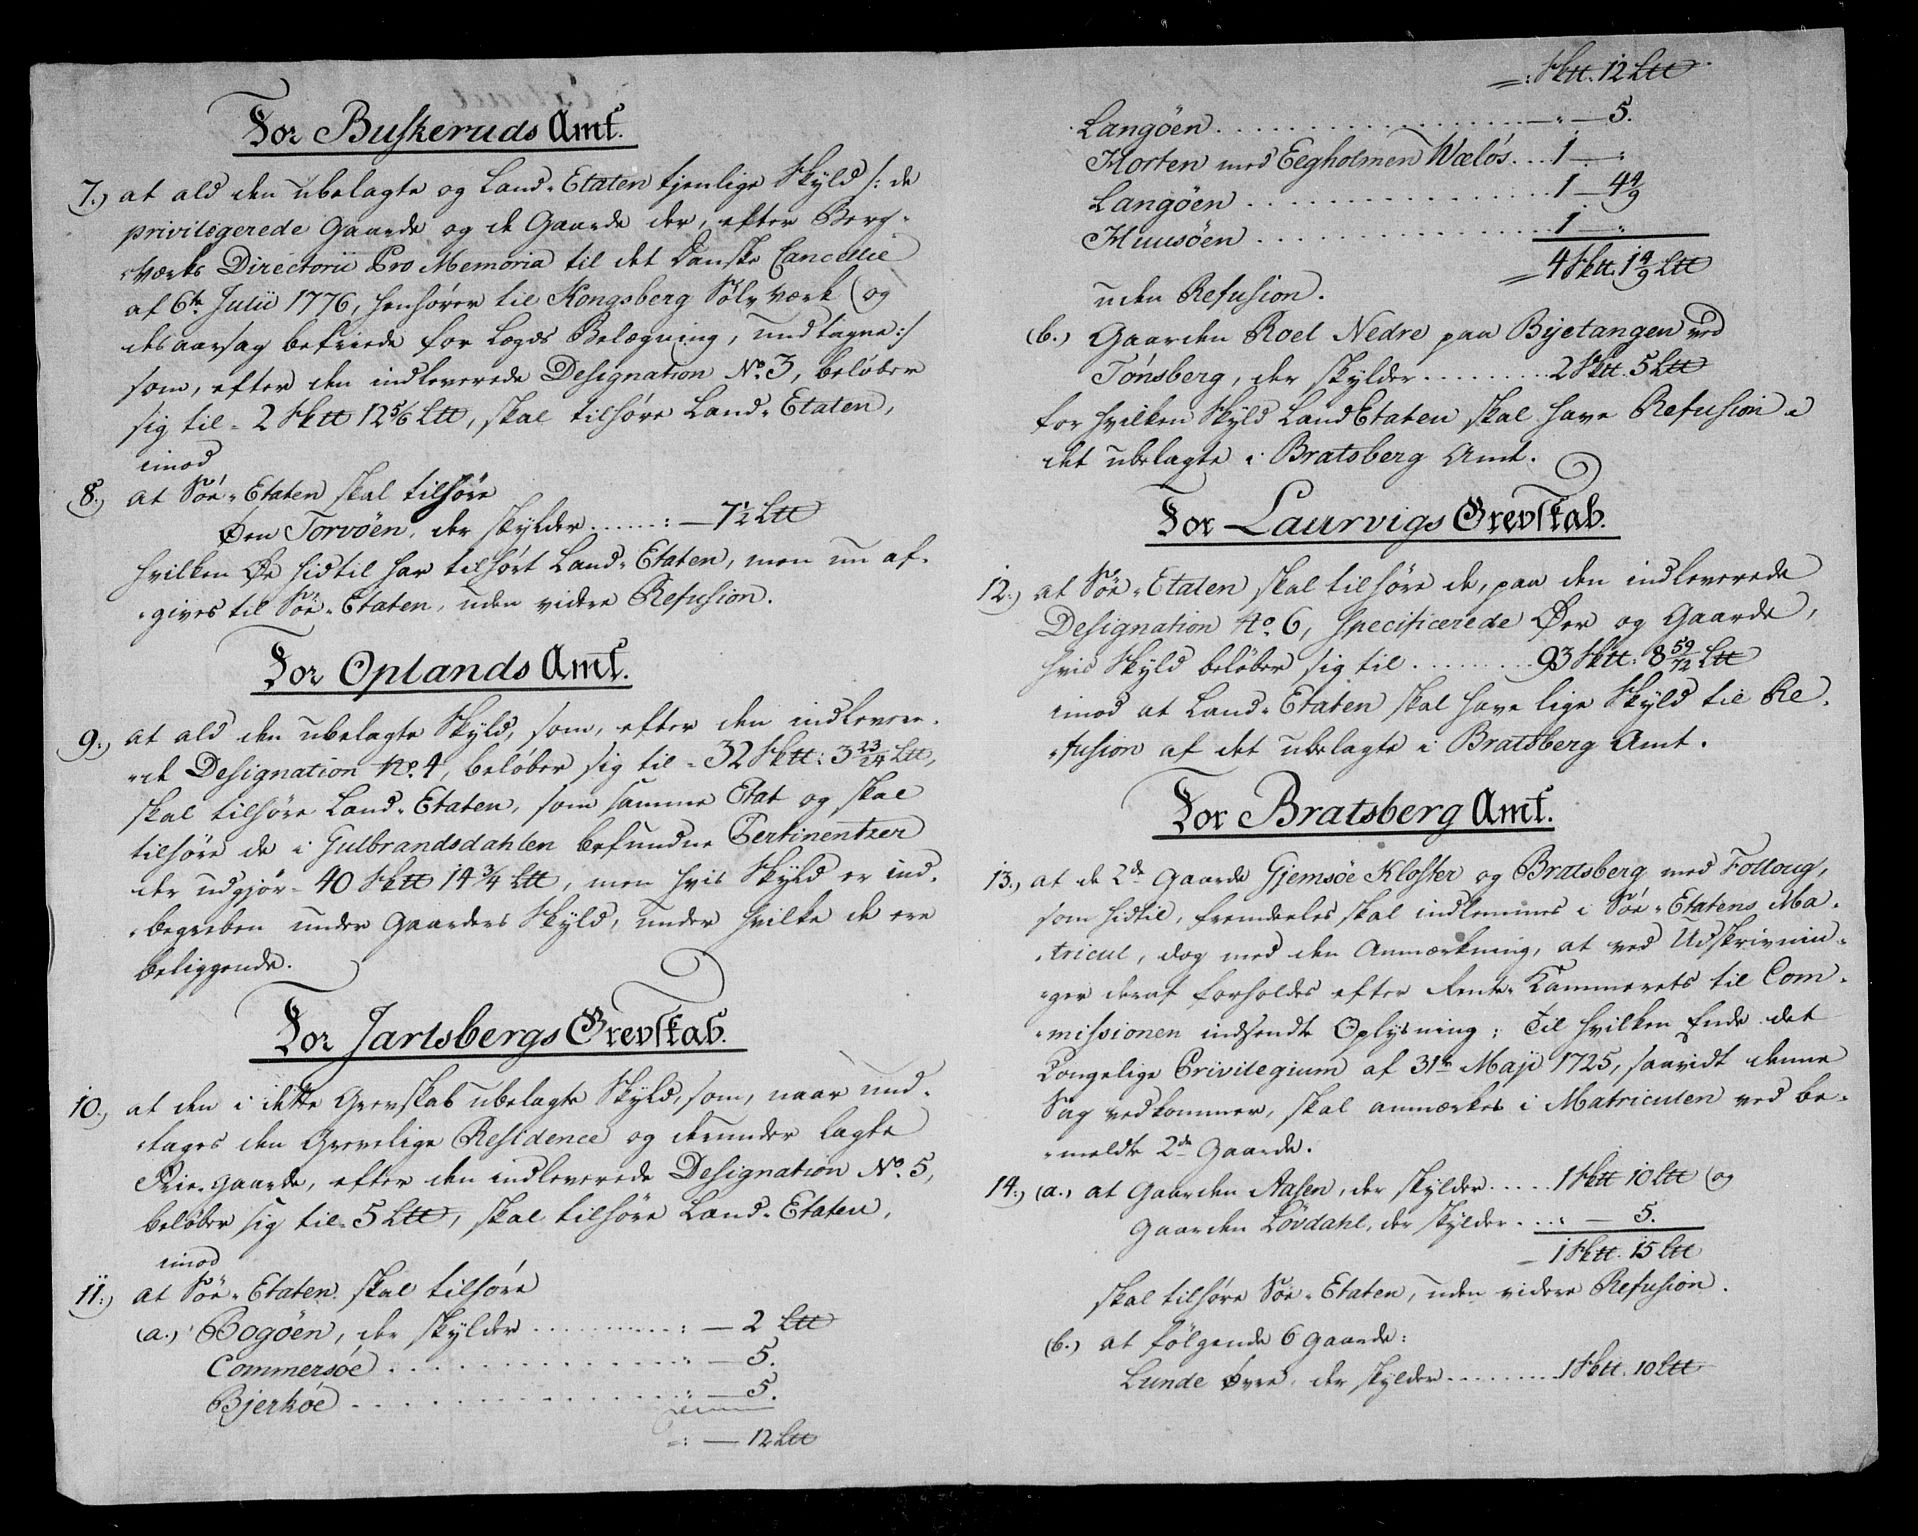 For Buskeruds Amt.
7.) at ald den ubelagte og Land-Etaten tjenlige Skyld /: de
privilegerede Gaarde og de Gaarde der, efter Berg-
-Værks Directorii Pro Memoria til det Danske Cancellie
af 6te Julii 1776, henhører til Kongsberg Sølv Værk (og
des aarsag befriede for Lægds Belægning, undtagne:/
som, efter den indleverede Designation No. 3, beløber
sig til - 2 Sktt 12 5/6 Ltt, skal tilhøre Land-Etaten,
imod
8.) at Søe-Etaten skal tilhøre
Øen Torvöen, der skylder ...... : — 7 1/2 Ltt
hvilken Øe hidtil har tilhørt Land-Etaten, men nu af-
-gives til Søe-Etaten, uden videre Refusion.
For Oplands Amt.
9.) at ald den ubelagte Skyld, som, efter den indlevere-
-de Designation No. 4, beløber sig til - 32 Sktt: 3 23/24 Ltt,
skal tilhøre Land-Etaten, som samme Etat og skal
tilhøre de i Gulbrandsdahlen befundne Pertinentzer
der udgjør - 40 Sktt 14 3/4 Ltt, men hvis Skyld er ind-
-begreben under Gaardens Skyld, under hvilke de ere
beliggende.
For Jarlsbergs Grevskab.
10.) at den i dette Grevskab ubelagte Skyld, som, naar und-
-tages den Grevelige Residence og derunder lagte
Frie-gaarde, efter den indleverede Designation No. 5,
beløber sig til 5 Ltt, skal tilhøre Land-Etaten,
imod
11.) at Søe-Etaten skal tilhøre
(a.) Bogöen, der skylder .......... : — 2 Ltt
Commersöe .................. : — 5.
Bjerköe .................. : — 5.
=: — 12 Ltt
=: Sktt. 12 Ltt
Langöen .................. — " — 5.
Horten med Eegholmen Wælös... 1 — "
Langöen .................. 1 — 4 4/9
Huusöen .................. 1 — "
= 4 Sktt. 1 4/9 Ltt
uden Refusion.
(b.) Gaarden Roel Nedre paa Byetangen ved
Tønsberg, der skylder ......... 2 Sktt. 5 Ltt
for hvilken Skyld Land Etaten skal have Refusion i
det ubelagte i Bratsberg Amt.
For Laurvigs Grevskab.
12.) at Søe-Etaten skal tilhøre de, paa den indleverede
Designation No. 6, specificerede Øer og Gaarde,
hvis Skyld beløber sig til ......... 93 Sktt: 8 59/72 Ltt
imod at Land-Etaten skal have lige Skyld til Re-
-fusion af det ubelagte i Bratsberg Amt.
For Bratsberg Amt.
13.) at de 2de Gaarde Gjemsöe Kloster og Bratsberg med Folloug,
som hidtil, fremdeles skal indlemmes i Søe-Etatens Ma-
-tricul, dog med den Anmærkning, at ved Udskrivnin-
-ger deraf forholdes efter Rente-Kammerets til Com-
-missionen indsendte Oplysning; til hvilken Ende det
Kongelige Privilegium af 31te Maji 1725, saavidt denne
Sag vedkommer, skal anmærkes i Matriculen ved be-
-meldte 2de Gaarde.
14.) (a.) at Gaarden Aasen, der skylder ..... 1 Sktt 10 Ltt (og
Gaarden Lövdahl, der skylder ...: — 5.
— 1 Sktt. 15 Ltt
skal tilhøre Søe-Etaten, uden videre Refusion.
(b.) at følgende 6 Gaarde:
Lunde Øvre, der skylder ........ 1 Sktt. 10 Ltt